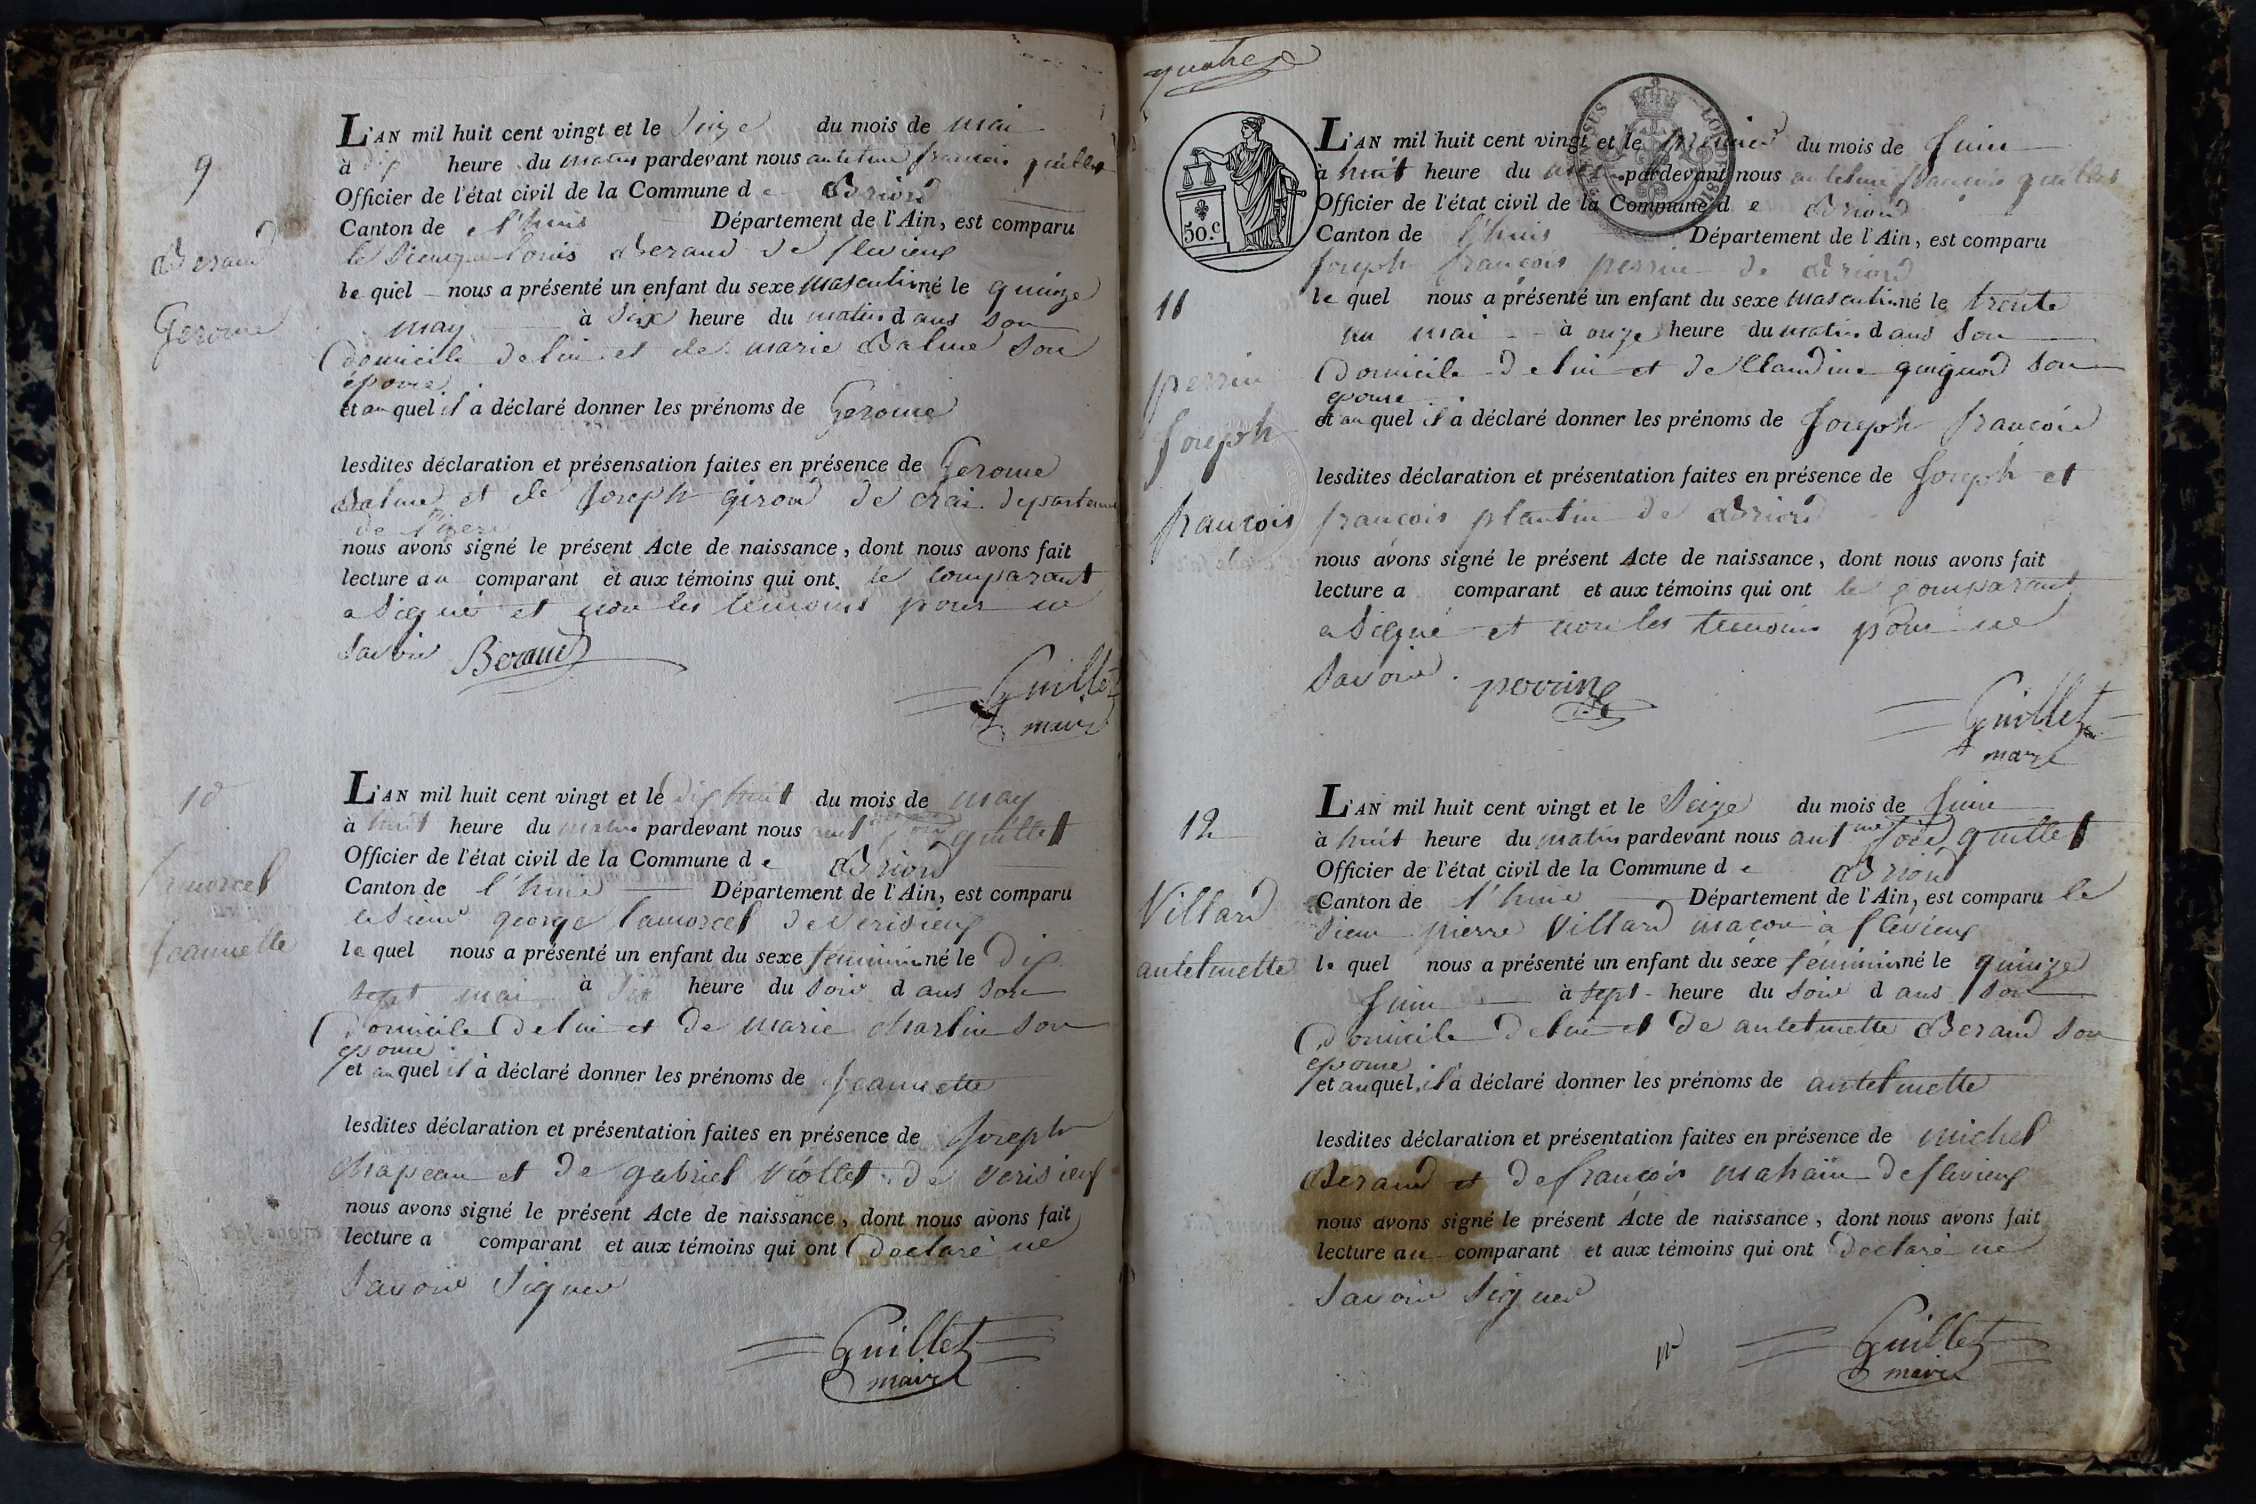 9
Beraud
Gerome
L'AN mil huit cent vingt et le Seize du mois de mai
à dix heure du matin pardevant nous antelme françois guillet
Officier de l'état civil de la Commune d e Briord
Canton de l'huis Département de l'Ain, est comparu
le Sieur Louis Beraud de flevieux
le quel nous a présenté un enfant du sexe masculin né le quinze
may à Six heure du matin d ans son
Domicile de lui et de marie Balme son
épouse
et au quel il a déclaré donner les prénoms de Gerome
lesdites déclaration et présensation faites en présence de Gerome
Balme et de Joseph giroud de crai departement
de l'izere
nous avons signé le présent Acte de naissance, dont nous avons fait
lecture au comparant et aux témoins qui ont le comparant
a Signé et non les témoins pour ne
Savoir Beraud
Guillet
maire
10
Jeannette
L'AN mil huit cent vingt et le dix huit du mois de may
à huit heure du matin pardevant nous ant guillet
Officier de l'état civil de la Commune d e Briord
Canton de l'huis Département de l'Ain, est comparu
le Sieur george lamorcel de Verisieux
le quel nous a présenté un enfant du sexe féminin né le Dix
sept mai à Six heure du Soir d ans son
Domicile De lui et De marie Martin son
epouse
et au quel il a déclaré donner les prénoms de Jeannette
lesdites déclaration et présentation faites en présence de Joseph
Chapeau et De gabriel Viollet de Verisieux
nous avons signé le présent Acte de naissance, dont nous avons fait
lecture a comparant et aux témoins qui ont Declaré ne
Savoir Signer
Guillet
maire
quatre
50.c
11
perrin
Joseph
françois
L'AN mil huit cent vingt et le premier du mois de Juin
à huit heure du matin pardevant nous antelme françois guillet
Officier de l'état civil de la Commune d e Briord
Canton de l'huis Département de l'Ain, est comparu
Joseph françois perrin de Briord
le quel nous a présenté un enfant du sexe masculin né le trente
un mai à onze heure du matin d ans Son
Domicile de lui et de Claudine guignod son
epouse
et au quel il a déclaré donner les prénoms de Joseph françois
lesdites déclaration et présentation faites en présence de Joseph et
françois plantin de Briord
nous avons signé le présent Acte de naissance, dont nous avons fait
lecture a comparant et aux témoins qui ont le comparant
a Signé et non les temoins pour ne
Savoir. perrin
Guillet
maire
12
Villard
antelmette
L'AN mil huit cent vingt et le Seize du mois de Juin
à huit heure du matin pardevant nous antme fois guillet
Officier de l'état civil de la Commune d e Briord
Canton de l'huis Département de l'Ain, est comparu le
Sieur pierre Villard maçon à flevieux
le quel nous a présenté un enfant du sexe féminin né le quinze
Juin à Sept heure du Soir d ans son
Domicile De lui et De antelmette Beraud son
epouse
et au quel il a déclaré donner les prénoms de antelmette
lesdites déclaration et présentation faites en présence de michel
Beraud et De françois De flevieux
nous avons signé le présent Acte de naissance, dont nous avons fait
lecture au comparant et aux témoins qui ont Declaré ne
Savoir Signer
Guillet
maire